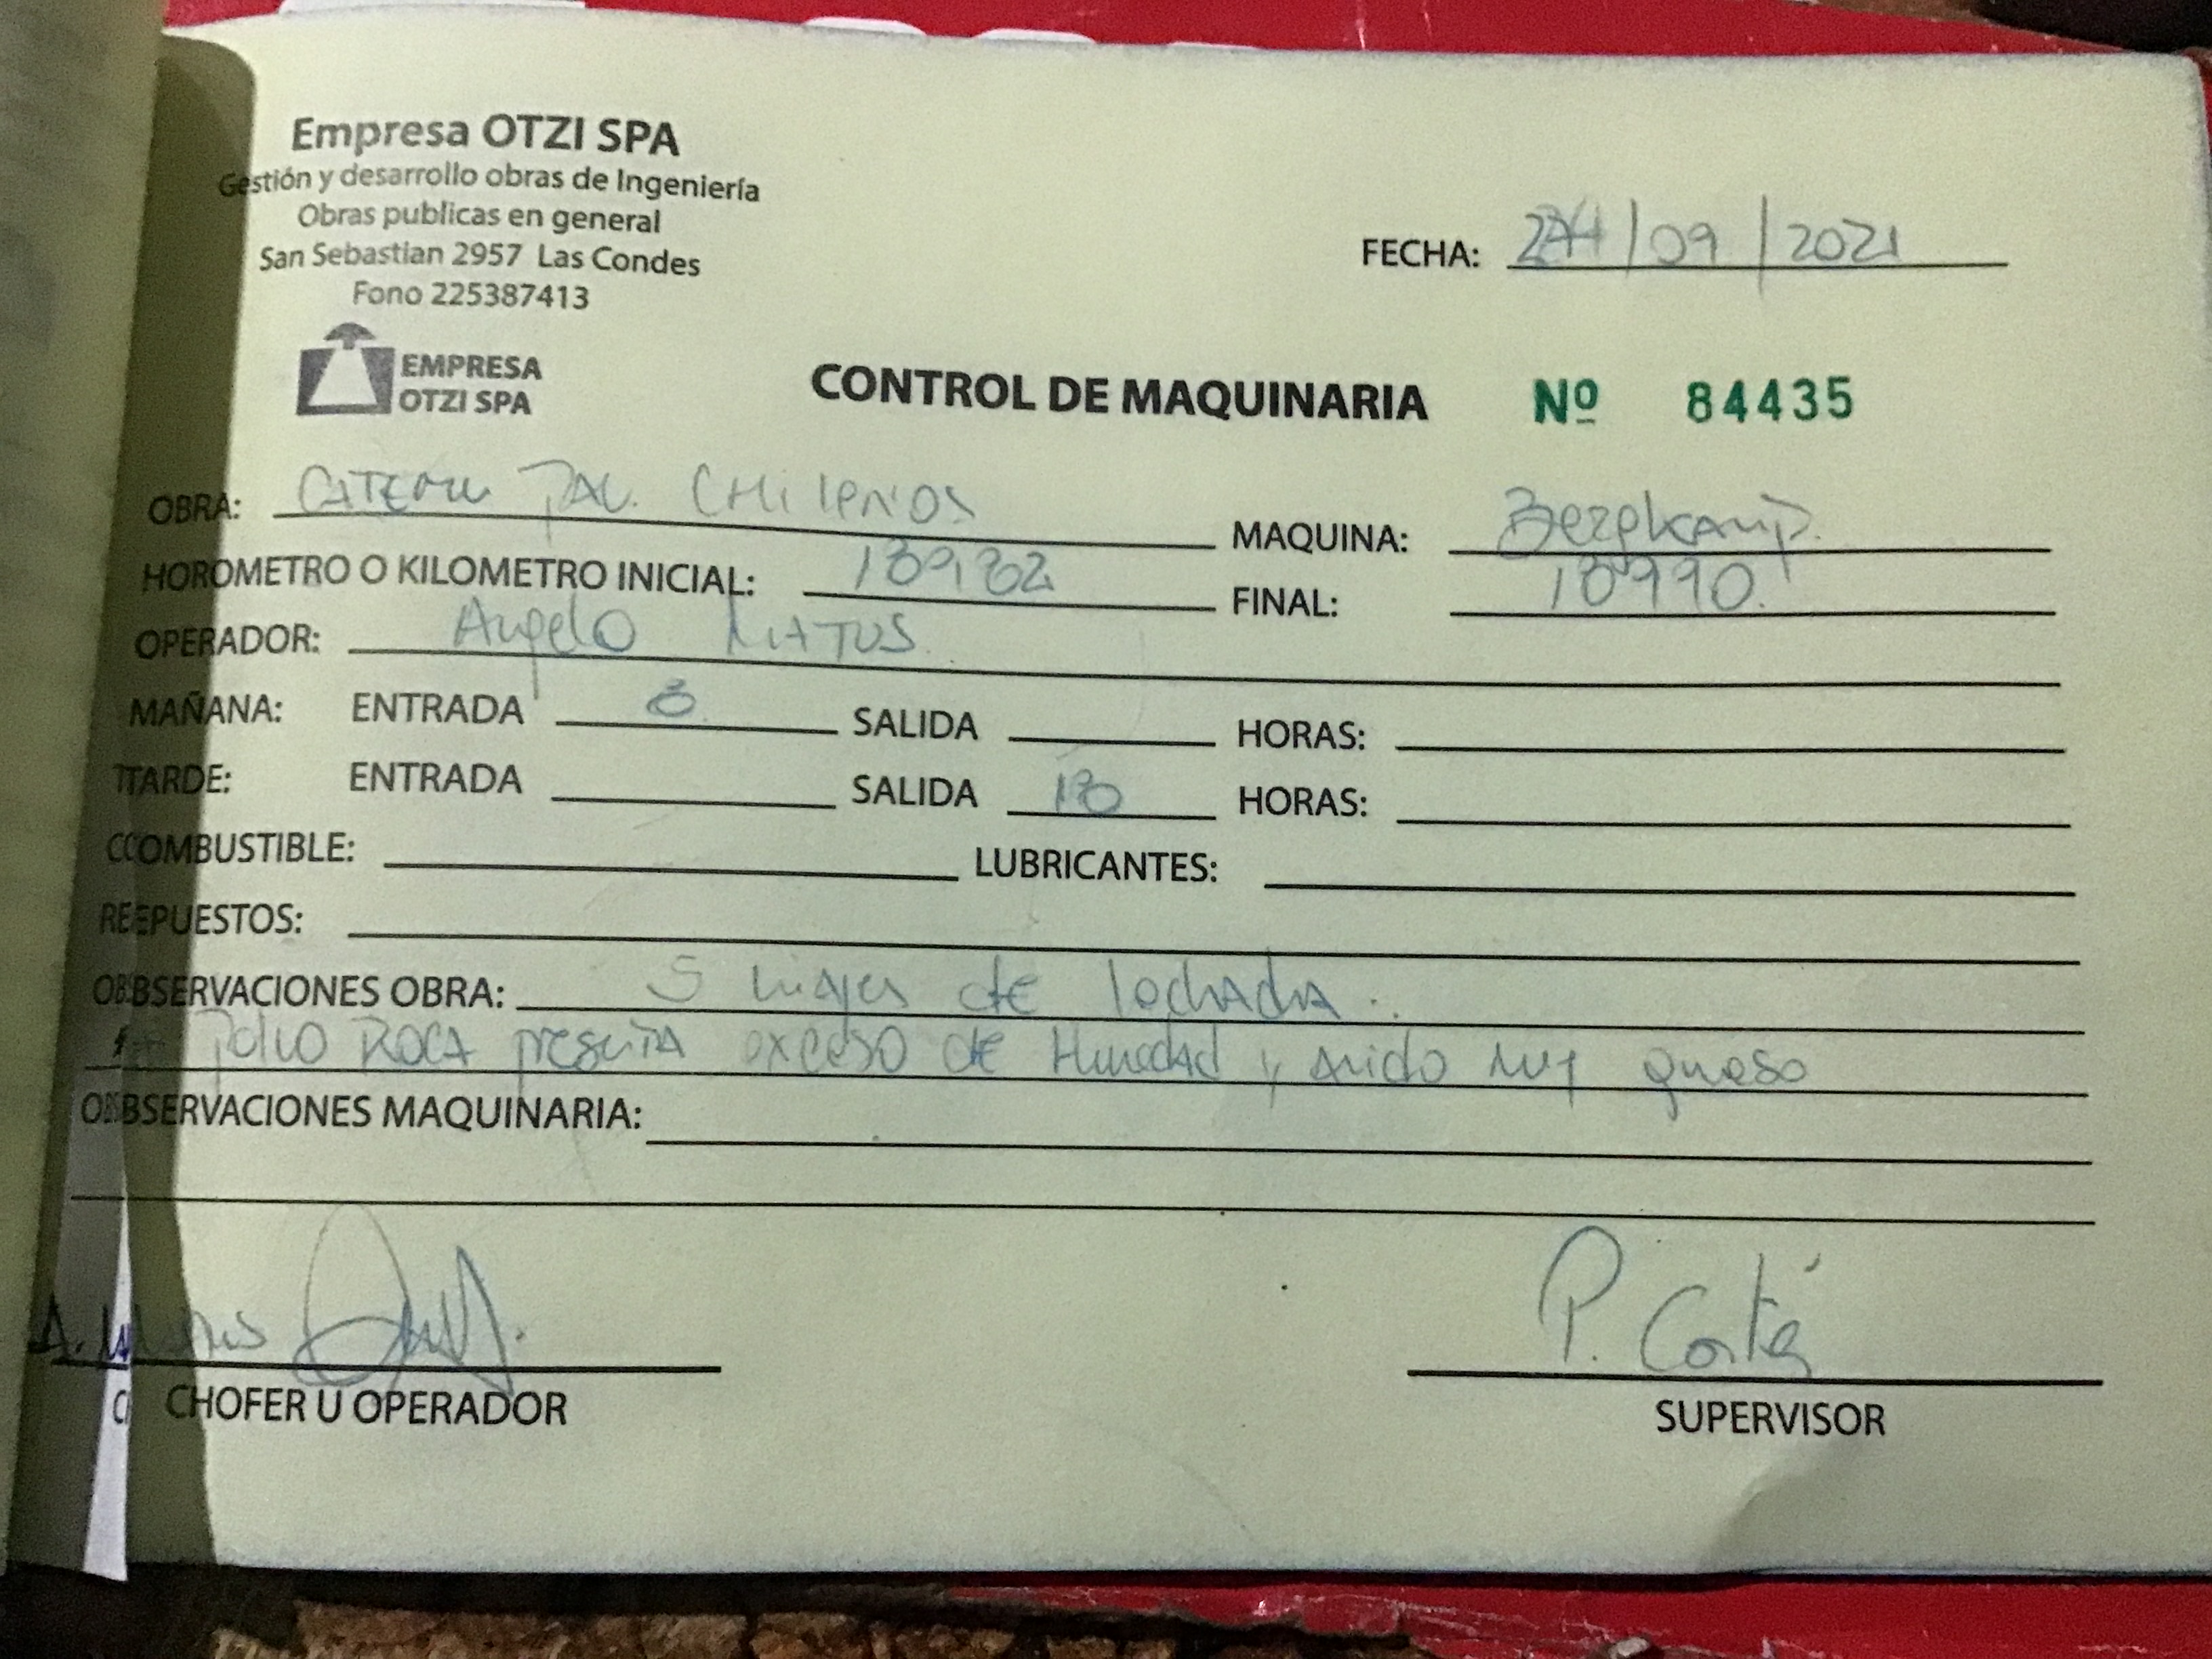 Empresa OTZI SPA
Gestión y desarrollo obras de Ingeniería
Obras publicas en general
San Sebastian 2957 Las Condes
Fono 225387413
FECHA: 24/09/2021
EMPRESA
OTZI SPA
CONTROL DE MAQUINARIA Nº 84435
OBRA: Chilenos MAQUINA:
HOROMETRO O KILOMETRO INICIAL: FINAL: 189990
OPERADOR: Angelo
MAÑANA: ENTRADA 8 SALIDA HORAS:
TARDE: ENTRADA SALIDA 18 HORAS:
COMBUSTIBLE: LUBRICANTES:
REPUESTOS:
OBSERVACIONES OBRA: 5 viajes de lechada.
Polvo Roca presenta exceso de Humedad y arido muy grueso
OBSERVACIONES MAQUINARIA:
P. Cortés
CHOFER U OPERADOR SUPERVISOR